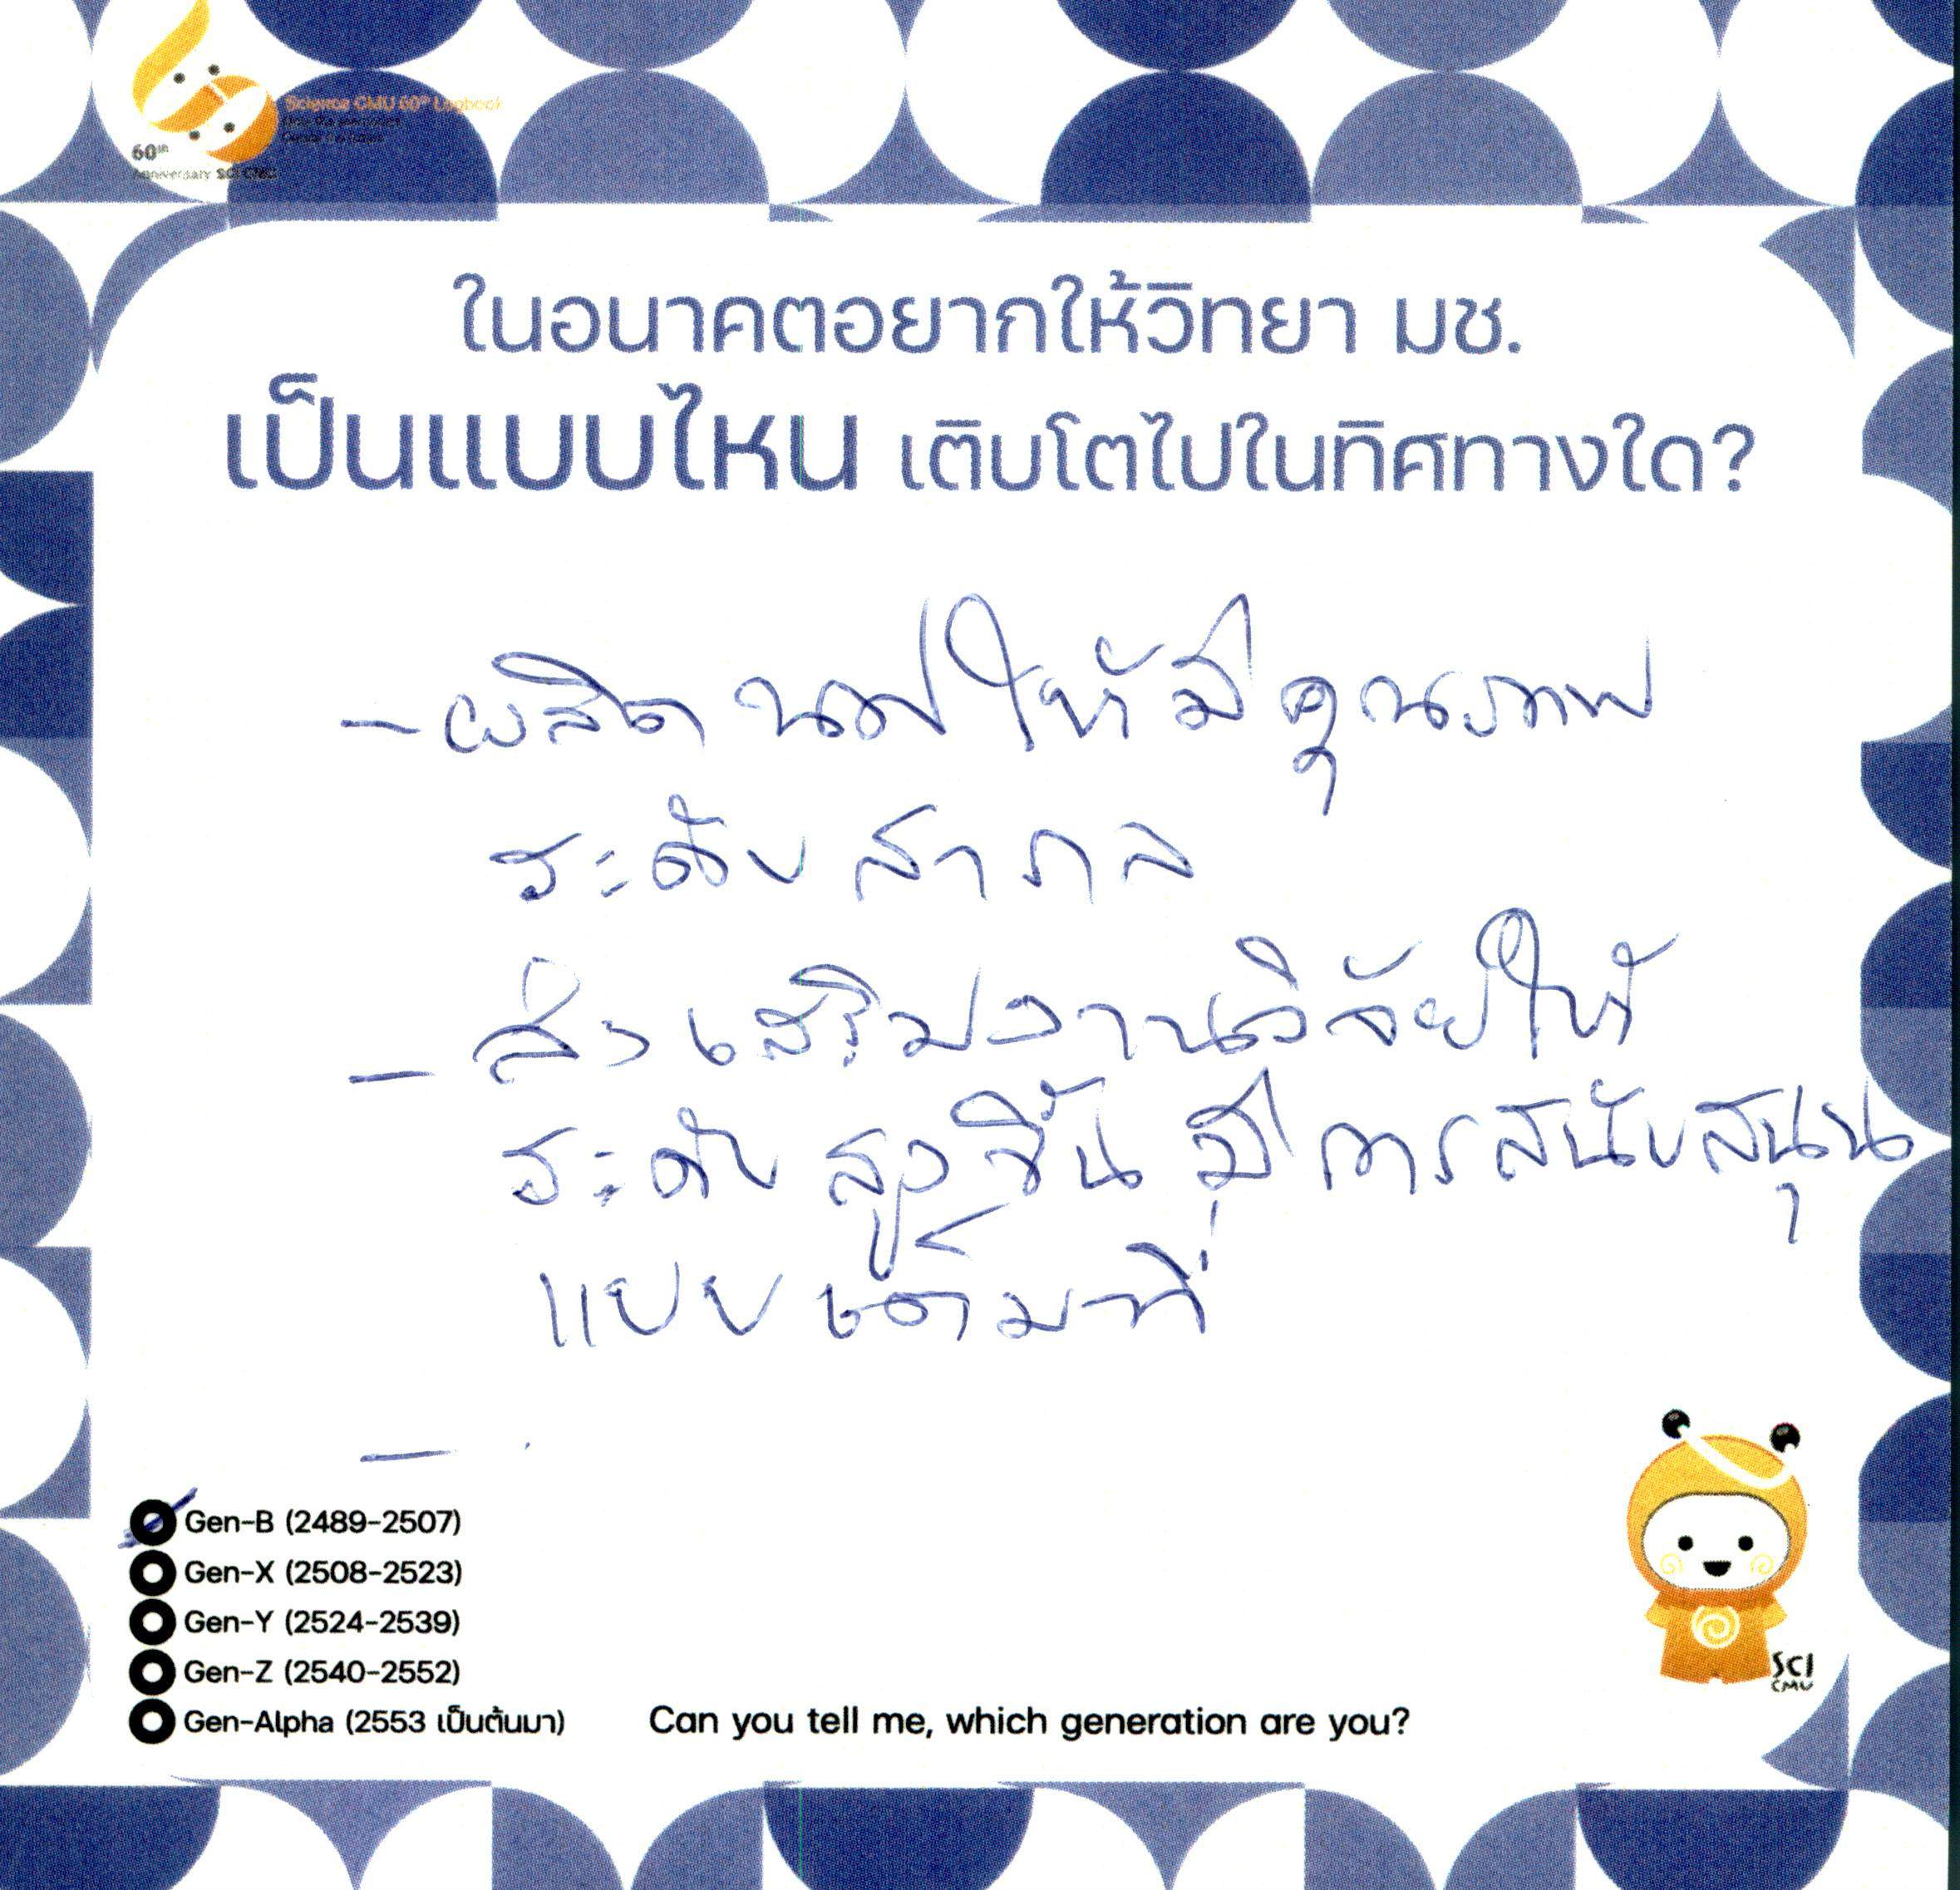 Science CMU 60th Logbook
60th
Anniversary SCI CMU
ในอนาคตอยากให้วิทยา มช.
เป็นแบบไหน เติบโตไปในทิศทางใด?
- ผลิต นศ ให้มีคุณภาพ
ระดับ สากล
- ส่งเสริมงานวิจัยให้
ระดับ สูงขึ้น มีการสนับสนุน
แบบ เต็มที่
-
Gen-B (2489-2507)
Gen-X (2508-2523)
Gen-Y (2524-2539)
Gen-Z (2540-2552)
Gen-Alpha (2553 เป็นต้นมา)
Can you tell me, which generation are you?
SCI
CMU